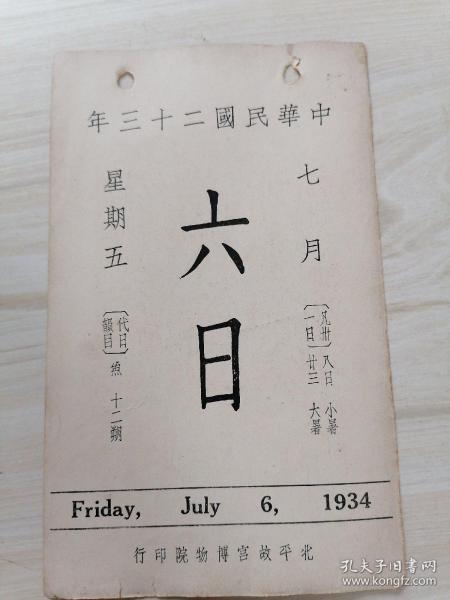 中華民國二十三年
七月
〔凡卅一日〕
八日 小暑
廿三 大暑
六日
星期五
〔代日韻目〕
十二朔
Friday, July 6, 1934
北平故宮博物院印行
孔夫子旧书网
www.kongfz.com